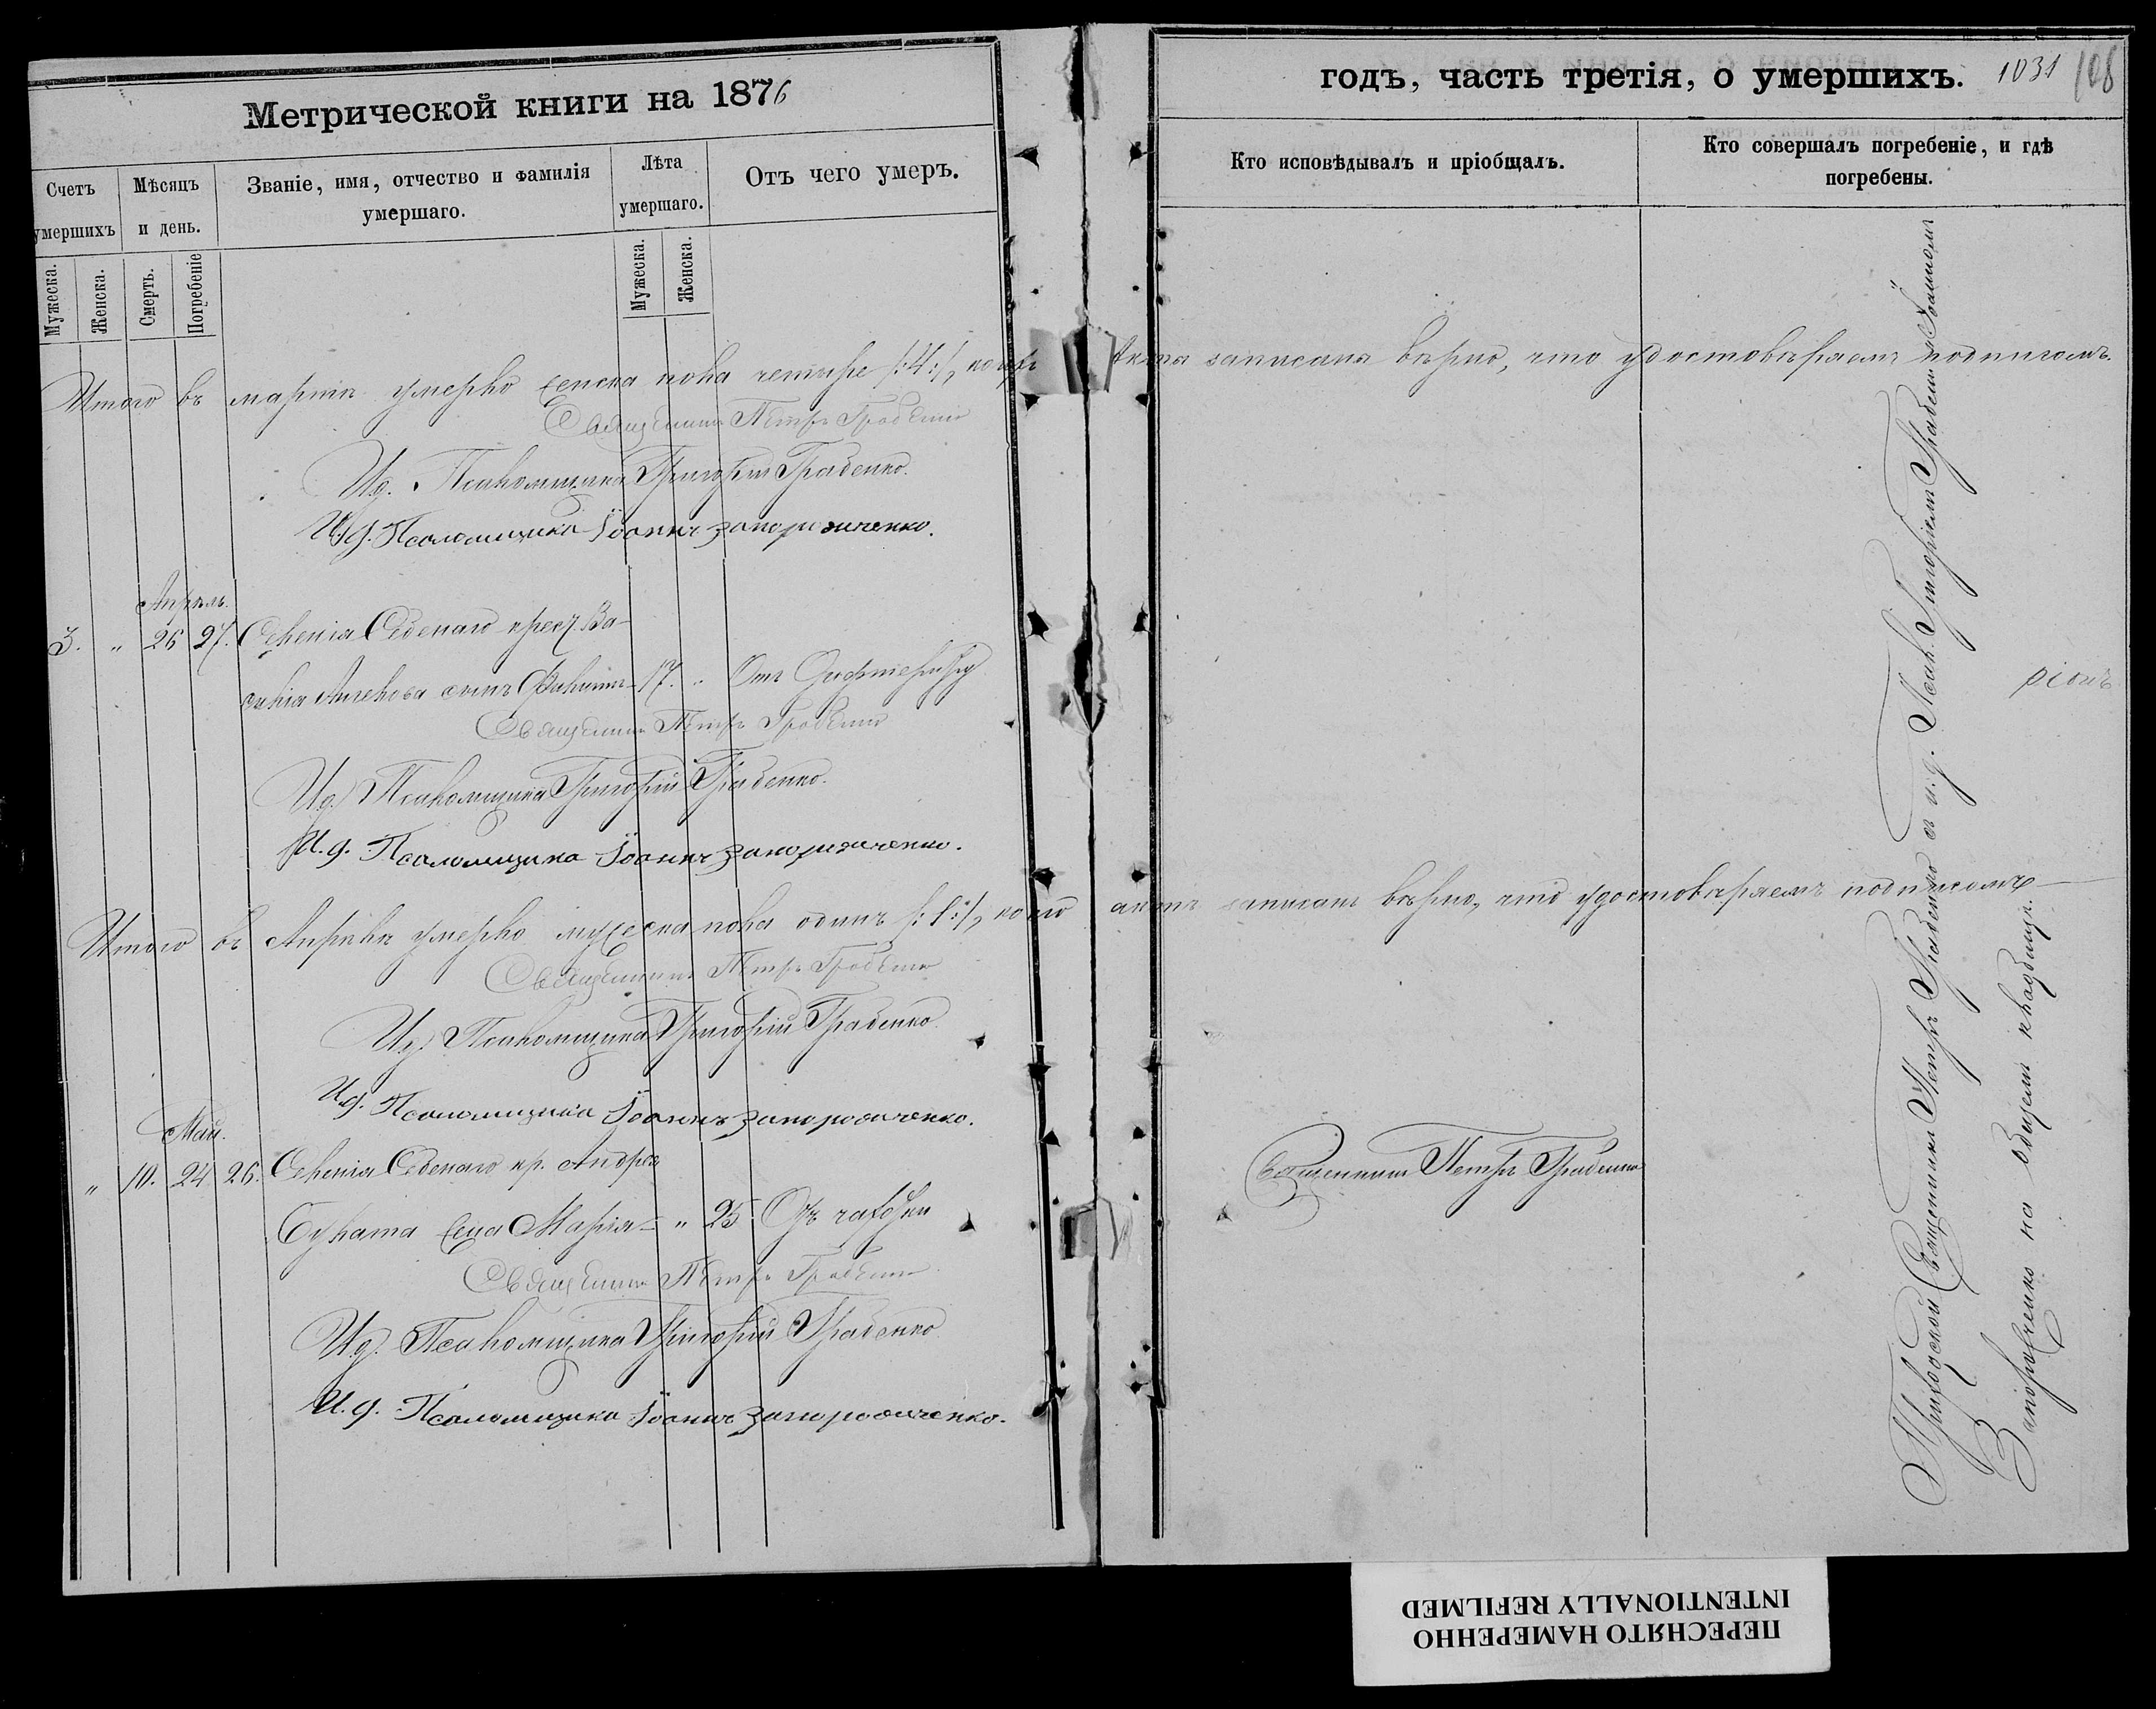 Метрической книги на 1876
Счетъ умершихъ
Мѣсяцъ и день.
Званіе, имя, отчество и фамилія умершаго.
Лѣта умершаго.
Отъ чего умеръ.
Мужеска.
Женска.
Смерть.
Погребеніе
Мужеска.
Женска.
Итого въ мартѣ умерло женска пола четыре /:4:/,
Священникъ Петръ Граденко
И.д. Псаломщика Григорій Граденко.
И.д. Псаломщика Іоаннъ Запорожченко.
Апрѣль.
3. „ 26 27. Селенія Седенаго крест. Ва-
силія сынъ 17. „ Отъ
Священникъ Петръ Граденко
И.д. Псаломщика Григорій Граденко.
И.д. Псаломщика Іоаннъ Запорожченко.
Итого въ Апрѣлѣ умерло мужеска пола одинъ /:1:/, коего
Священникъ Петръ Граденко
И.д. Псаломщика Григорій Граденко
И.д. Псаломщика Іоаннъ Запорожченко.
Май.
„ 10. 24 26. Селенія Седенаго кр. Андрея
жена Марія „ 25 Отъ чахотки
Священникъ Петръ Граденко
И.д. Псаломщика Григорій Граденко
И.д. Псаломщика Іоаннъ Запорожченко.
годъ, часть третія, о умершихъ. 1031 108
Кто исповѣдывалъ и пріобщалъ.
Кто совершалъ погребеніе, и гдѣ погребены.
акты записаны вѣрно, что удостовѣряемъ подписомъ.
актъ записанъ вѣрно, что удостовѣряемъ подписомъ
Священникъ Петръ Граденко
Приходской Священникъ Петръ Граденко съ и.д. Псал. Григоріемъ Граденко и Іоанномъ
Запорожченко на общемъ кладбищѣ.
ПЕРЕСНЯТО НАМЕРЕННО
INTENTIONALLY REFILMED